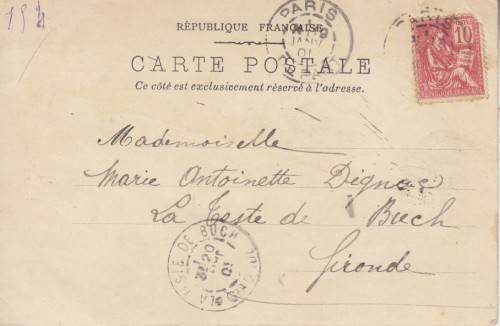 154
PARIS
RÉPUBLIQUE FRANÇAISE
10
CARTE POSTALE
Ce côté est exclusivement réservé à l'adresse.
Mademoiselle
Marie Antoinette Dignac
La Teste de Buch
Gironde
LA TESTE DE BUCH
20
01